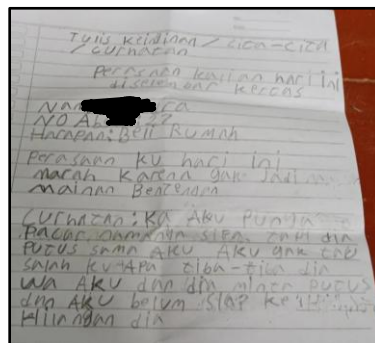 Tulis keidinan / cita-cita
/ curhatan
Perasaan kalian hari ini
diselembar kertas
Nam ra
NO A 22
Harapan: Beli Rumah
Perasaan ku hari ini
marah karena gak Jadi
mainan Bentendra
Curhatan: Ka AKU Punya
Pacar namanya sifa tapi dia
Putus sama AKU AKU gak tau
salah ku APA tiba-tiba dia
Wa AKU dan dia minta Putus
dan AKU belum siap
Hilangan dia